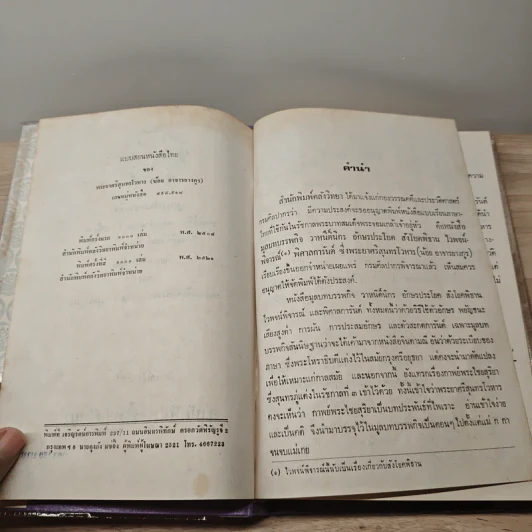 แบบสอนหนังสือไทย
ของ
พระยาศรีสุนทรโวหาร (น้อย อาจารยางกูร)
เลขหมู่หนังสือ ๔๙๕.๙๑๘
พิมพ์ครั้งแรก ๑๐๐๐ เล่ม พ.ศ.
สำนักพิมพ์คลังวิทยาพิมพ์จำหน่าย
พิมพ์ครั้งที่ ๑๐๐๐ เล่ม พ.ศ. ๒๕๒๑
สำนักพิมพ์คลังวิทยาพิมพ์จำหน่าย
พิมพ์ที่ เจริญรัตน์การพิมพ์ ถนนอินทรพิทักษ์ ตรอกวัดหิรัญรูจี
กรุงเทพ ฯ ผู้พิมพ์ผู้โฆษณา 2521 โทร.
คำนำ
สำนักพิมพ์คลังวิทยา ได้มาแจ้งแก่กองวรรณคดีและประวัติศาสตร์
กรมศิลปากรว่า มีความประสงค์จะขออนุญาตจัดพิมพ์หนังสือแบบเรียนภาษา-
ไทยที่ใช้กันในรัชกาลพระบาทสมเด็จพระจอมเกล้าเจ้าอยู่หัว คือหนังสือ
มูลบทบรรพกิจ วาหนิติ์นิกร อักษรประโยค สังโยคพิธาน ไวพจน์-
พิจารณ์(๑) พิศาลการันต์ ซึ่งพระยาศรีสุนทรโวหาร(น้อย อาจารยางกูร)
เรียบเรียงขึ้นออกจำหน่ายเผยแพร่ กรมศิลปากรพิจารณาแล้ว เห็นสมควร
อนุญาตให้จัดพิมพ์ได้ดังประสงค์
หนังสือมูลบทบรรพกิจ วาหนิติ์นิกร อักษรประโยค สังโยคพิธาน
ไวพจน์พิจารณ์ และพิศาลการันต์ ทั้งหมดนี้ว่าด้วยวิธีใช้ตัวอักษร พยัญชนะ
เสียงสูงต่ำ การผัน การประสมอักษร และตัวสะกดการันต์ เฉพาะมูลบท
บรรพกิจสันนิษฐานว่าจะได้เค้ามาจากหนังสือจินดามณี อันว่าด้วยระเบียบของ
ภาษา ซึ่งพระโหราธิบดีแต่งไว้ในสมัยกรุงศรีอยุธยา แต่คงจะนำมาดัดแปลง
เพื่อให้เหมาะแก่กาลสมัย และนอกจากนี้ ยังแทรกเรื่องกาพย์พระไชยสุริยา
ซึ่งสุนทรภู่แต่งในรัชกาลที่ ๓ เข้าไว้ด้วย ทั้งนี้เข้าใจว่าพระยาศรีสุนทรโวหาร
คงจะเห็นว่า กาพย์พระไชยสุริยาเป็นบทประพันธ์ที่ไพเราะ อ่านเข้าใจง่าย
และเป็นคติ จึงนำมาบรรจุไว้ในมูลบทบรรพกิจเป็นตอนๆ ไปตั้งแต่แม่ ก กา
จนจบแม่เกย
(๑) ไวพจน์พิจารณ์นี้นับเป็นเรื่องเกี่ยวกับสังโยคพิธาน